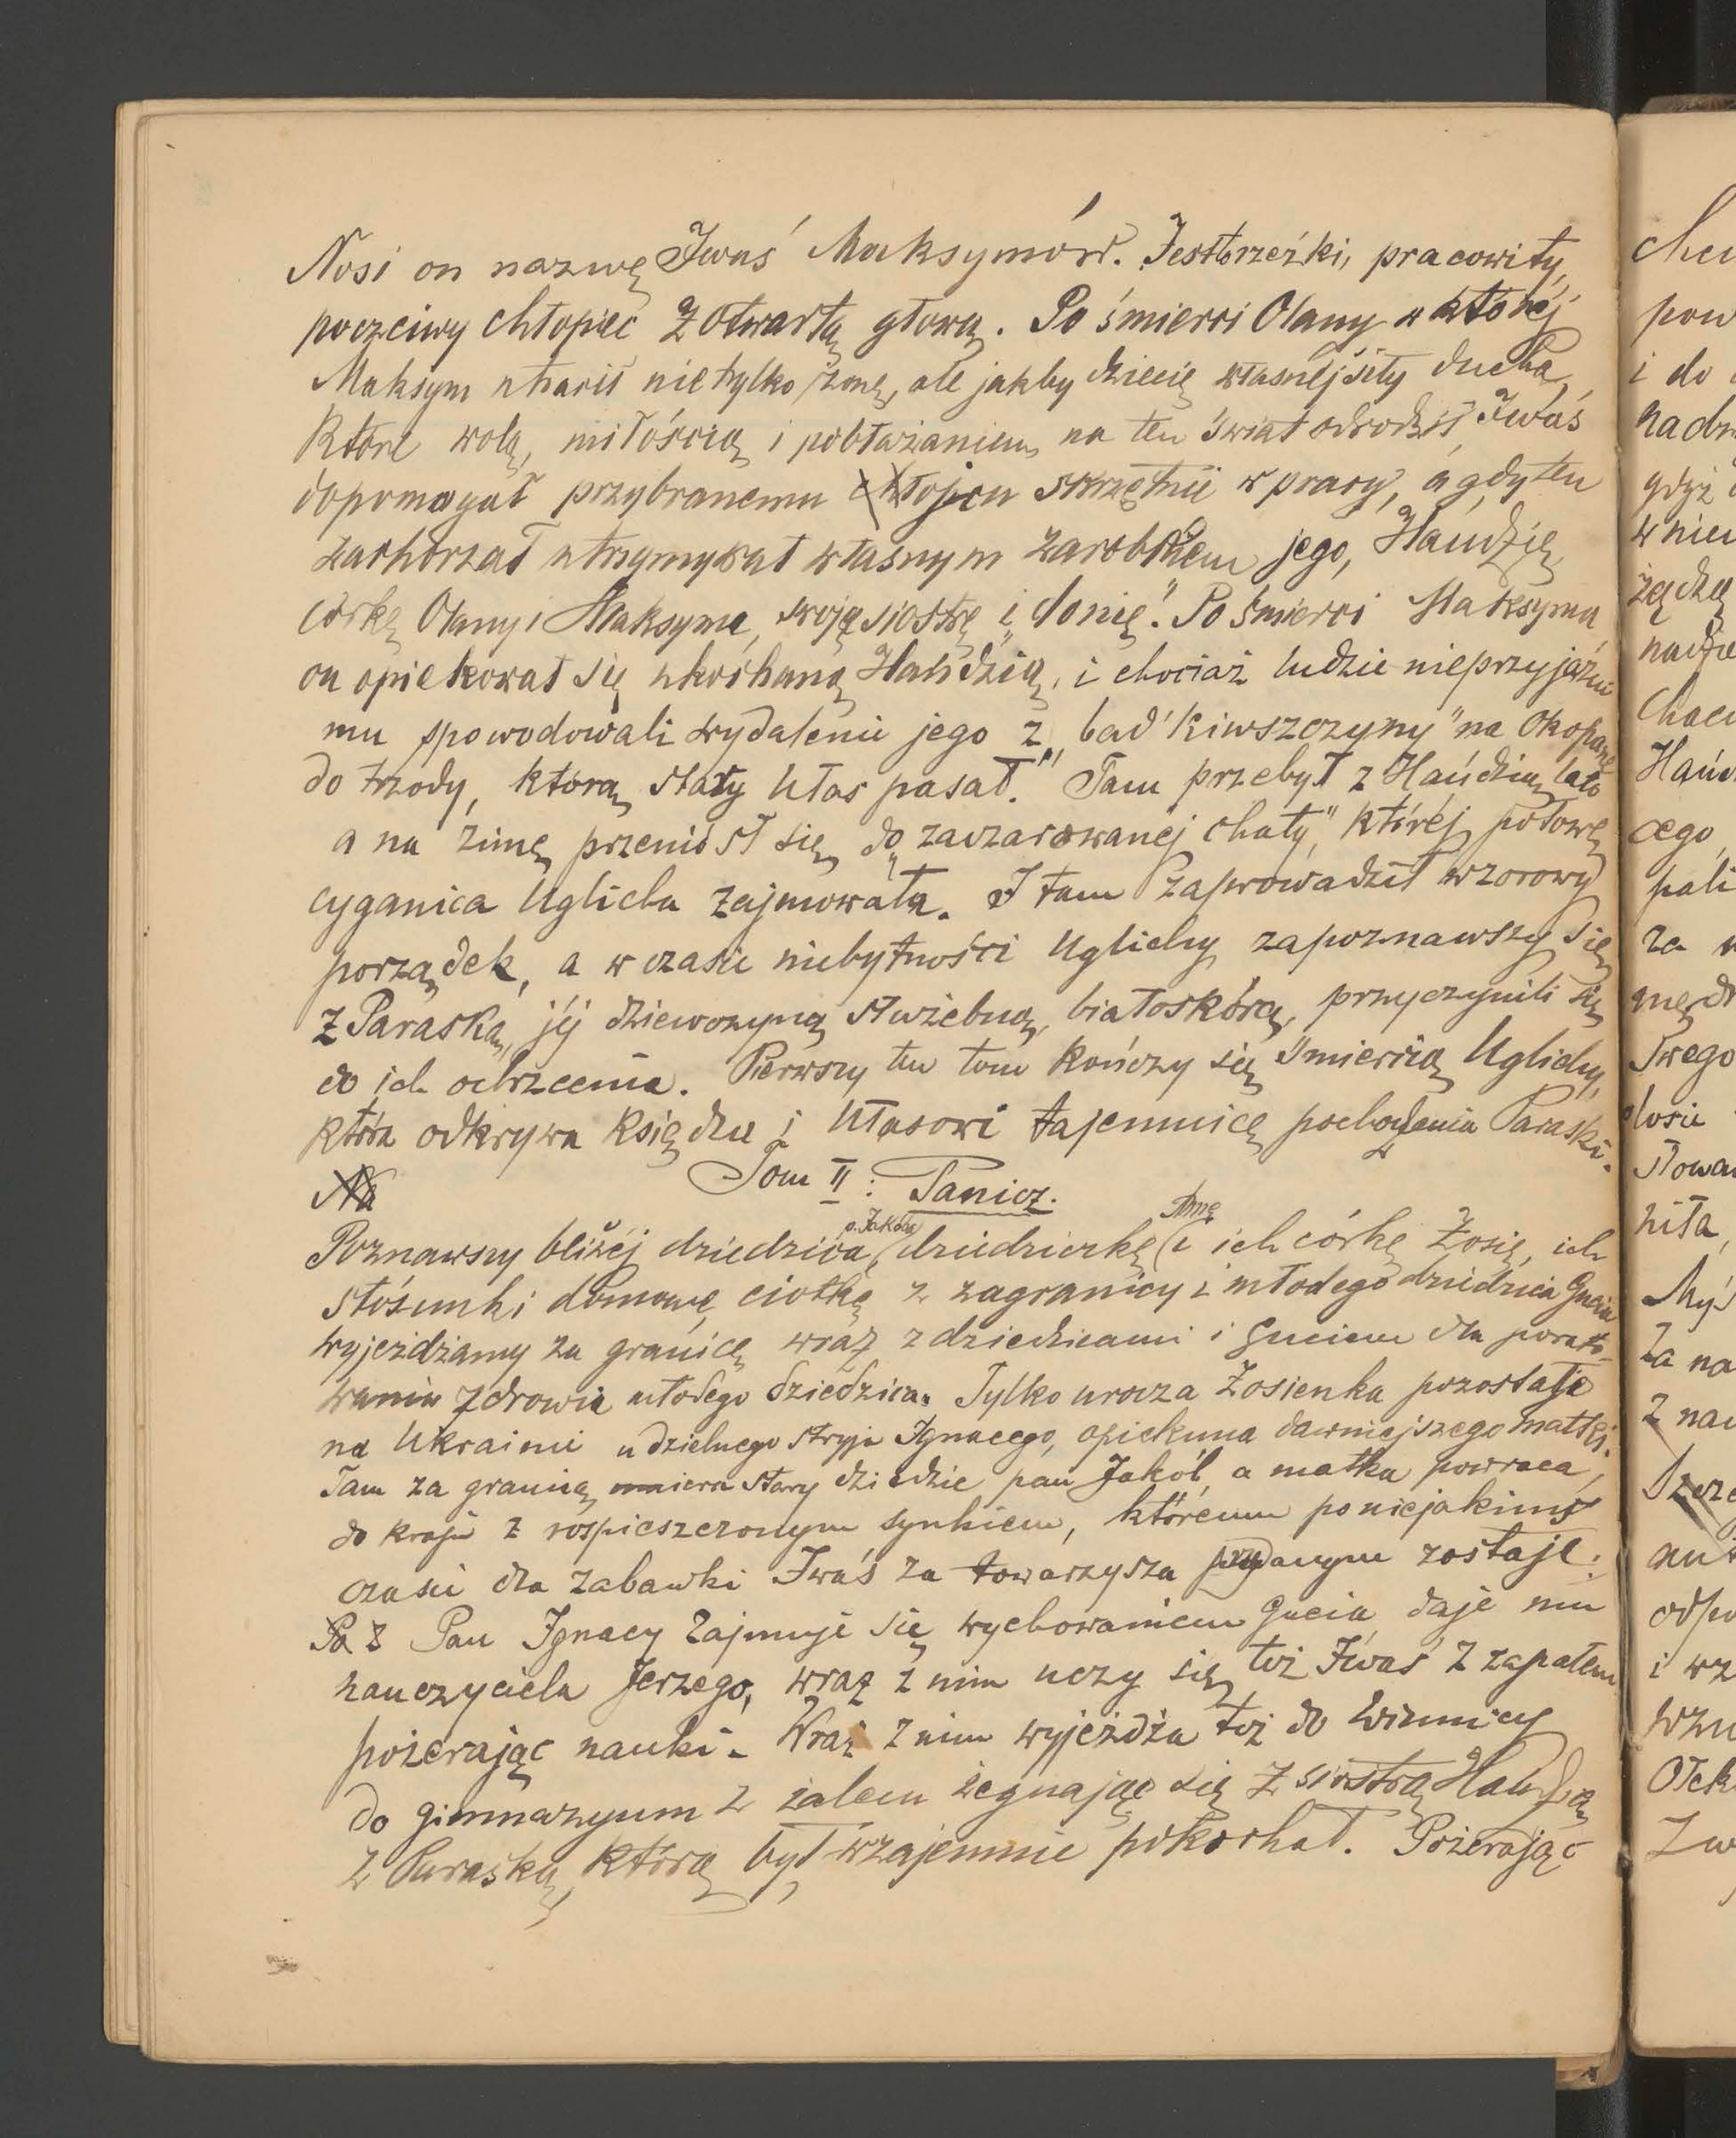 Nosi on nazwę Iwaś Maksymów. Jest to rzeźki, pracowity,
poczciwy chłopiec z otwartą głową. Po śmierci Olany w której
Maksym stracił nie tylko żonę, ale jakby dziecię własnej siły ducha,
które wolą, miłością i pobłażaniem na ten świat odrodził, Iwaś
dopomagał przybranemu ojcu skrzętnie w pracy, a gdy ten
zachorzał utrzymywał własnym zarobkiem jego, Hańdzię,
córkę Olany i Maksyma, swoję siostrę i „donię". Po śmierci Maksyma
on opiekował się ukochaną Hańdzią, i chociaż ludzie nieprzyjaźni
mu spowodowali wydalenie jego z „bat'kiwszczyny" na Okopane
do trzody, którą stary Ułas pasał. Tam przebył z Hańdzią lato
a na zimę przeniósł się do „zaczarowanej chaty", której połowę
cyganica Uglicha zajmowała. I tam zaprowadził wzorowy
porządek, a w czasie niebytności Uglichy zapoznawszy się
z Paraską, jéj dziewczyną służebną, białoskórą, przyczynili się
do ich ochrzcenia. Pierwszy ten tom kończy się śmiercią Uglichy,
która odkrywa księdzu i Ułasowi tajemnicę pochodzenia Paraski.
Na Tom II: Panicz.
p. Jakóba Annę
Poznawszy bliżéj dziedzica, dziedziczkę i ich córkę Zosię, ich
stósunki domowe, ciotkę z zagranicy i młodego dziedzica Gucia
wyjeżdżamy za granicę wraz z dziedzicami i Guciem dla porato-
wania zdrowia młodego dziedzica. Tylko urocza Zosieńka pozostaje
na Ukrainie u dzielnego stryja Ignacego, opiekuna dawniejszego matki.
Tam za granicą umiera stary dziedzic pan Jakób, a matka powraca
do kraju z rospieszczonym synkiem, któremu po niejakimś
czasie dla zabawki Iwaś za towarzysza przydanym zostaje.
Pa Z Pan Ignacy zajmuje się wychowaniem Gucia, daje mu
nauczyciela Jerzego, wraz z nim uczy się też Iwaś z zapałem
pożerając nauki. Wraz z nim wyjeżdża też do Winnicy
do gimnazyum z żalem żegnając się z siostrą Hańdzią
z Paraską, którą był wzajemnie pokochał. Pożerając